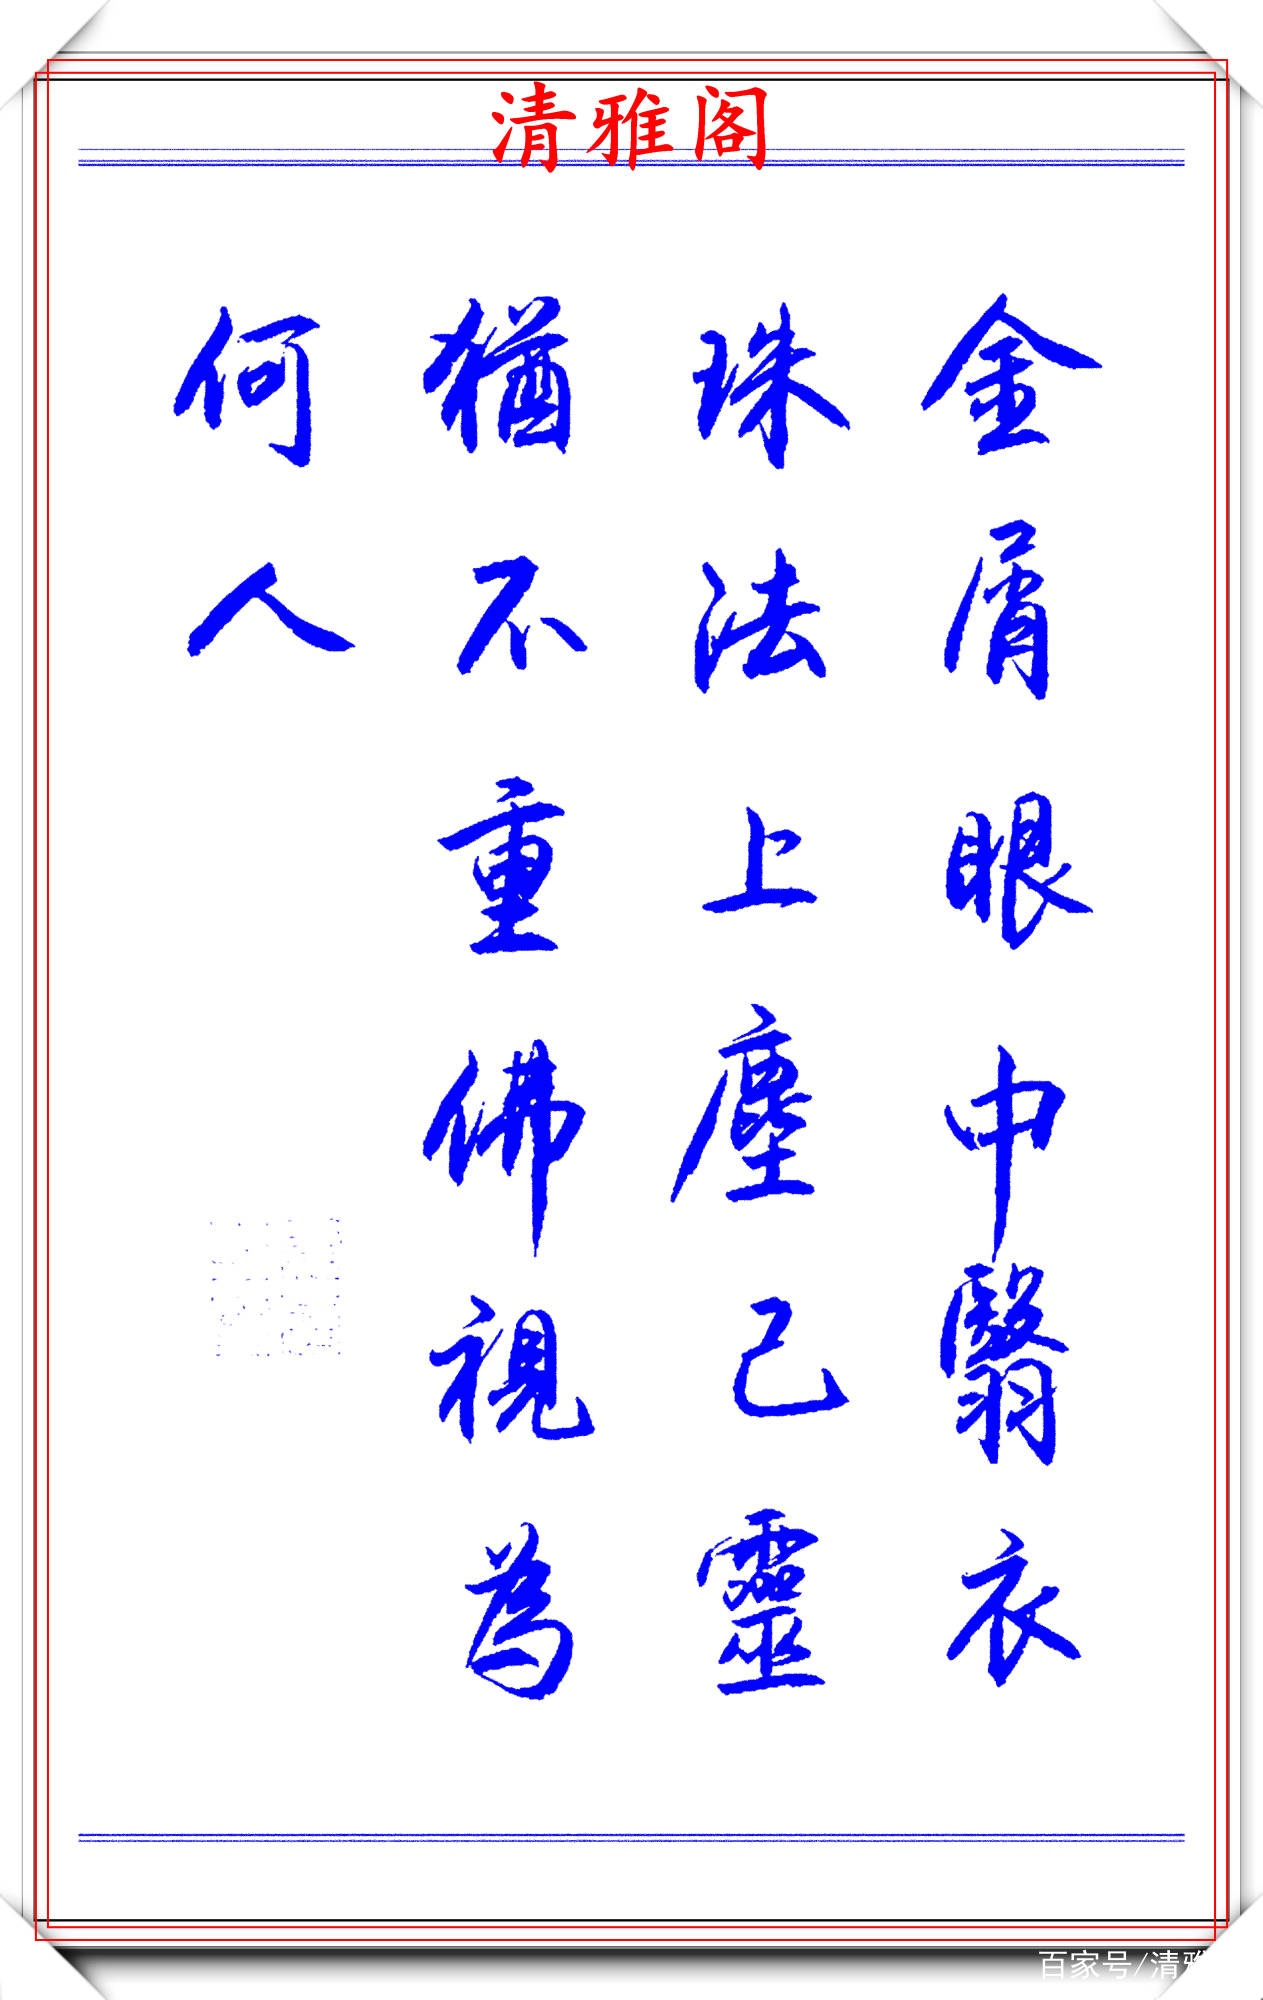 清雅阁
金屑眼中翳衣
珠法上塵己靈
猶不重佛視為
何人
百家号/清雅